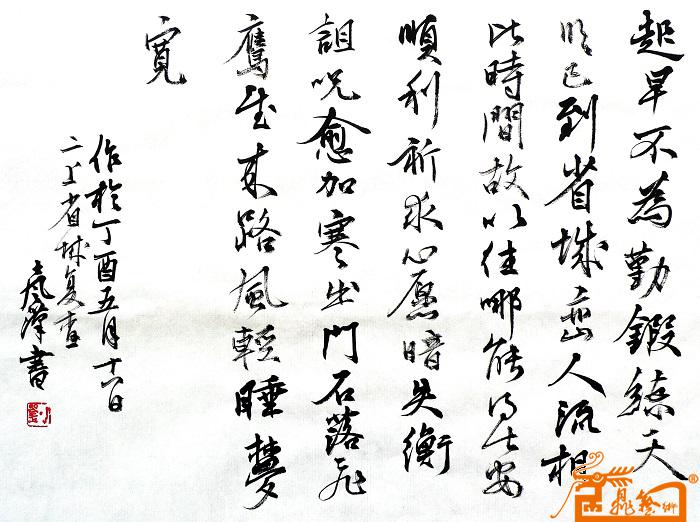 起早不為勤鍛鍊天
已到省城峦人流相
比時間故以往哪能得此安
順利祈求心愿暗失衡
詛咒愈加寒出門石落飛
鷹來路風輕睡夢
寬
作於丁酉五月十八日
二上省城复查
書